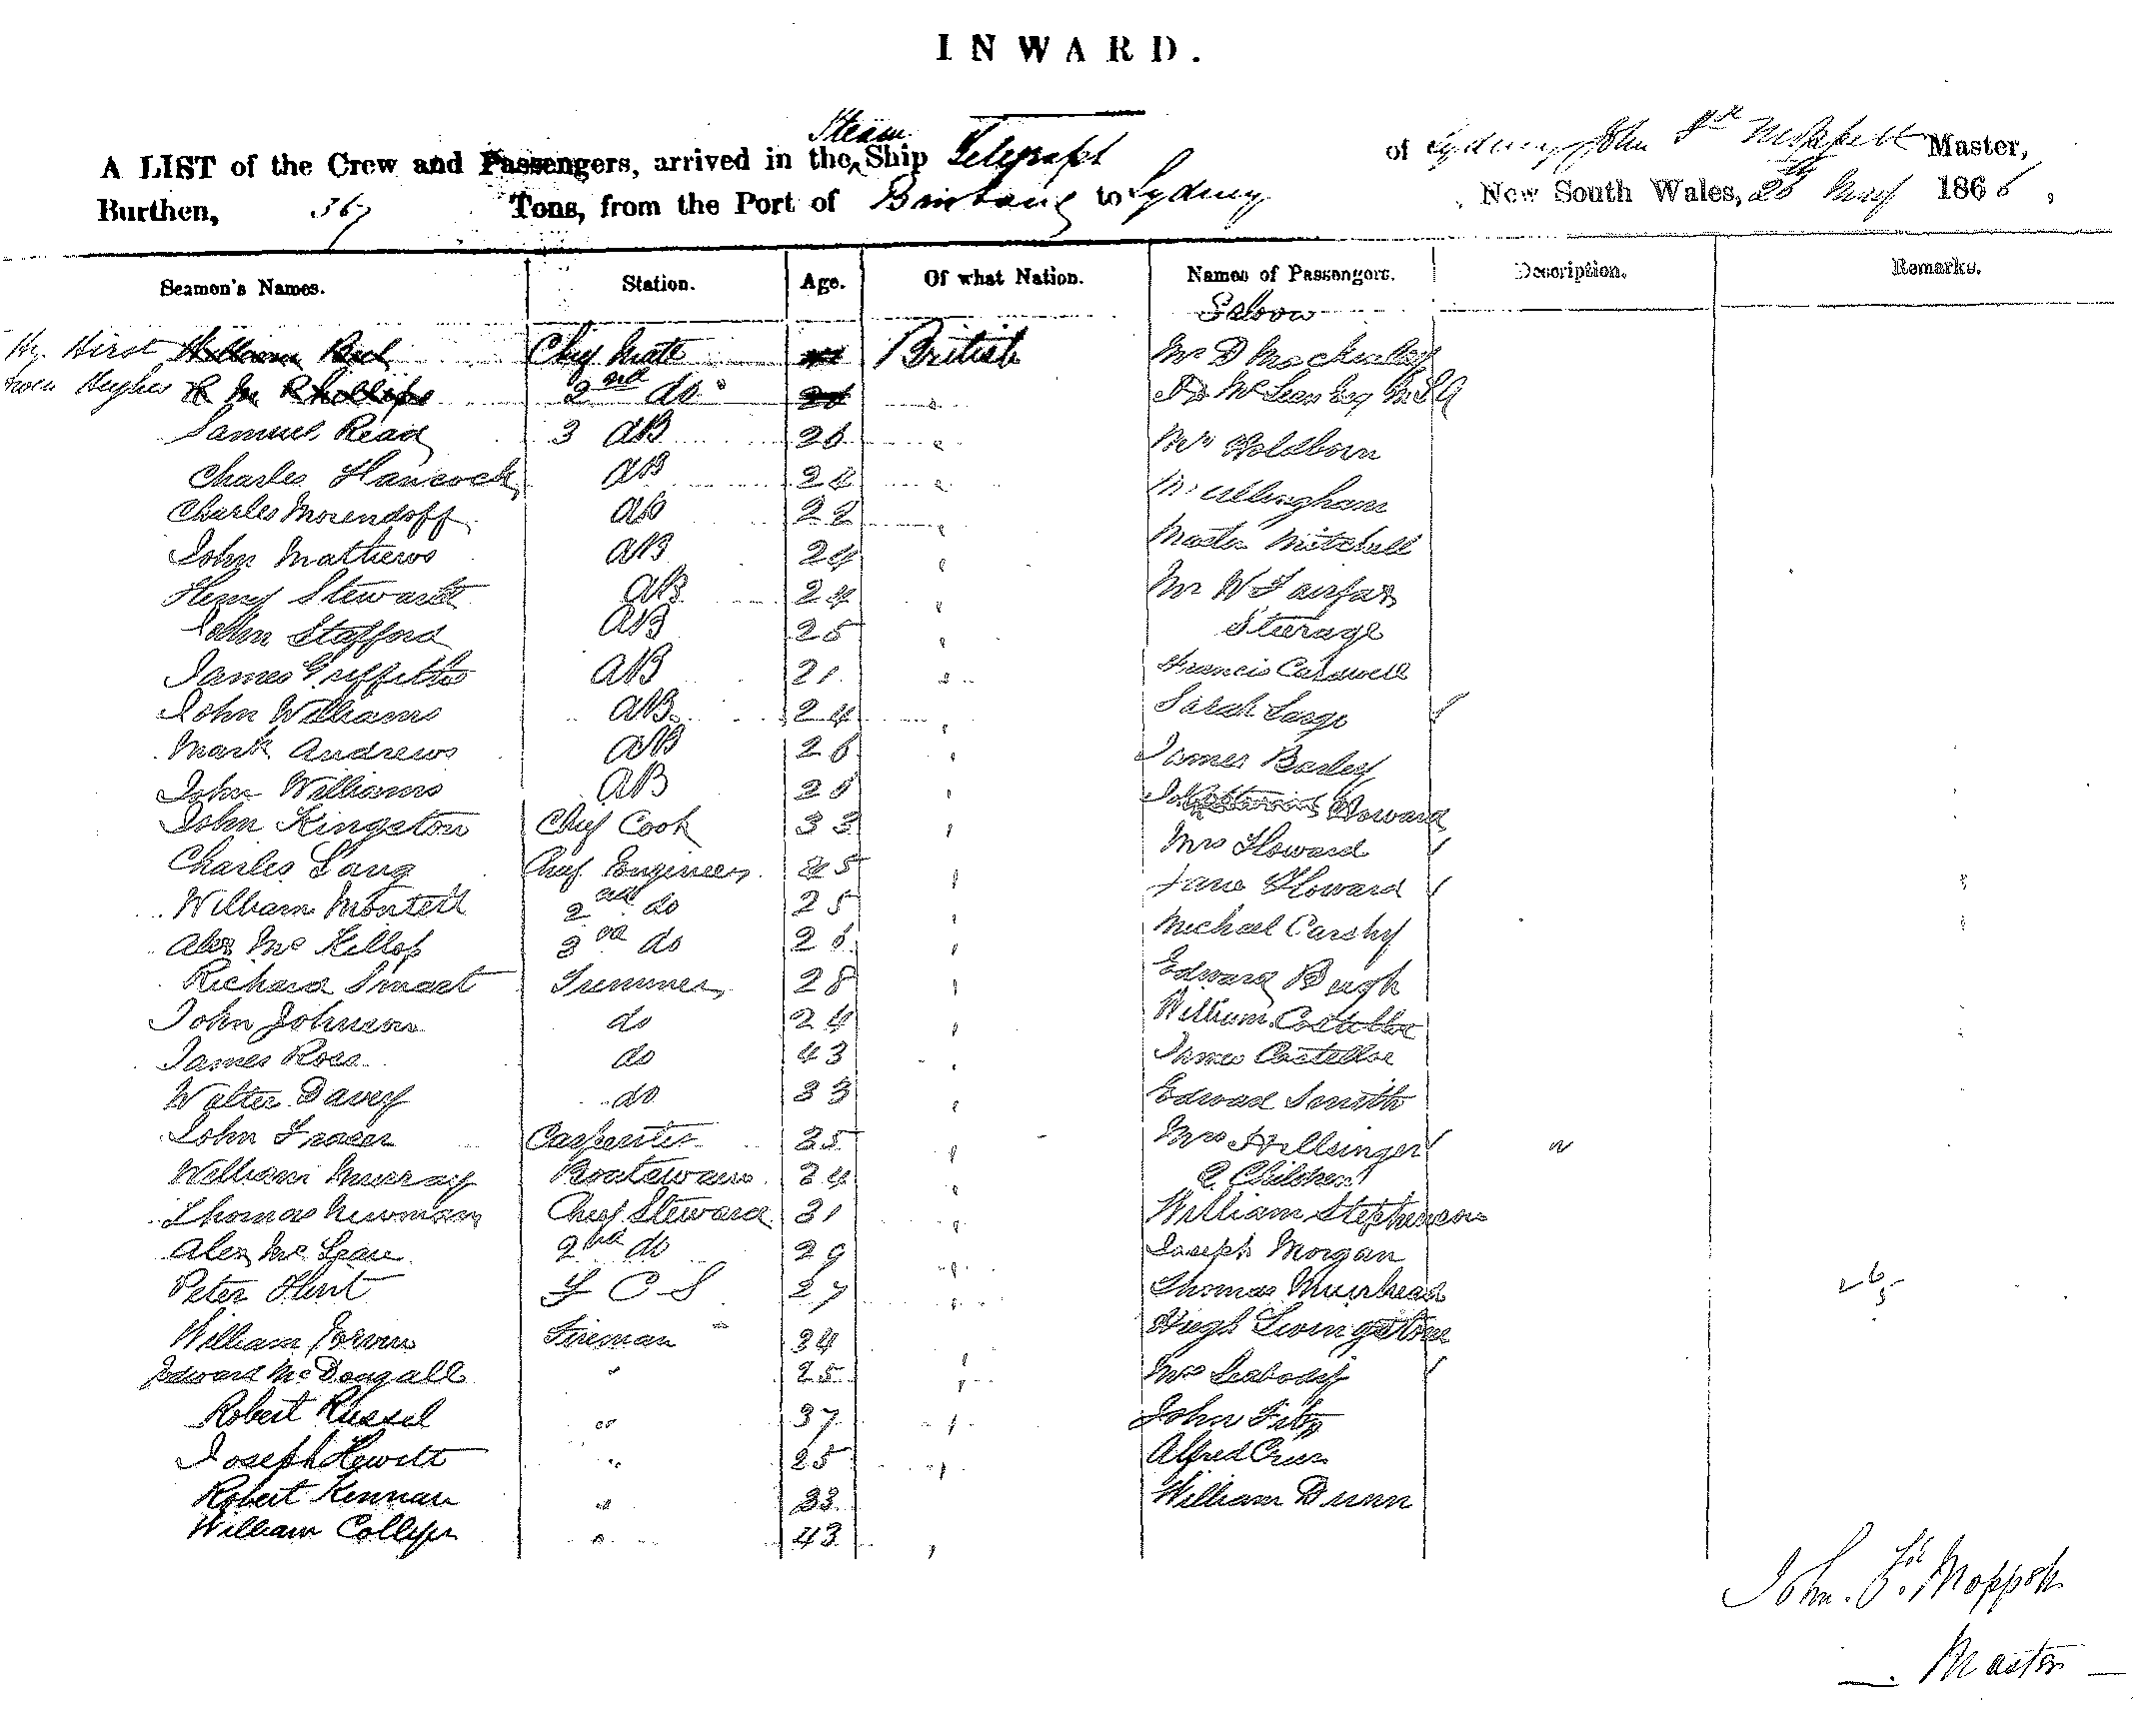 INWARD.
A LIST of the Crew and Passengers, arrived in the Steam Ship Telegraph of Sydney John Master,
Burthen, 367 Tons, from the Port of Brisbane to Sydney New South Wales, May 1866,
Seamen's Names. Station. Age. Of what Nation. Names of Passengers. Description. Remarks.
Saloon
Hy. Hirst Chief Mate British Mr D
Hughes 2nd do McLean Esq
Samuel Read 3 AB 26 Holdborn
Charles Hancock AB
Charles Morendoff AB 22
John Mathews AB 24 Master Mitchell
Henry Steward AB 24 Mr W Fairfax
John Stafford AB 25 Steerage
James Griffiths AB 21 Francis Caldwell
John Williams AB 24 Sarah Large
Mark Andrews AB 26 James
John Williams AB Howard
John Kingston Chief Cook 33 Mrs Howard
Charles Lang Chief Engineer 45 Jane Howard
William Monteil 2nd do 25 Michael
Alex McKillop 3rd do 26 Edward
Richard Smart Trimmer 28 William Costelloe
John Johnson do 24 James Costelloe
James Ross do 43 Edward Smith
Walter Davey do 33
John Fraser Carpenter 35 Mrs
William Murray Boatswain 34 2 Children
Thomas Newman Chief Steward 31 William Stephenson
Alex McLean 2nd do 29 Joseph Morgan
Peter Hunt F C S 27 Thomas Muirhead
William Fireman 34 Hugh Livingstone
Edward McDougall " 25 Mrs
Robert Russel " 37 John
Joseph Hewitt " 25 Alfred
Robert Kennan " 33 William Dunn
William Collyer " 43
John
Master